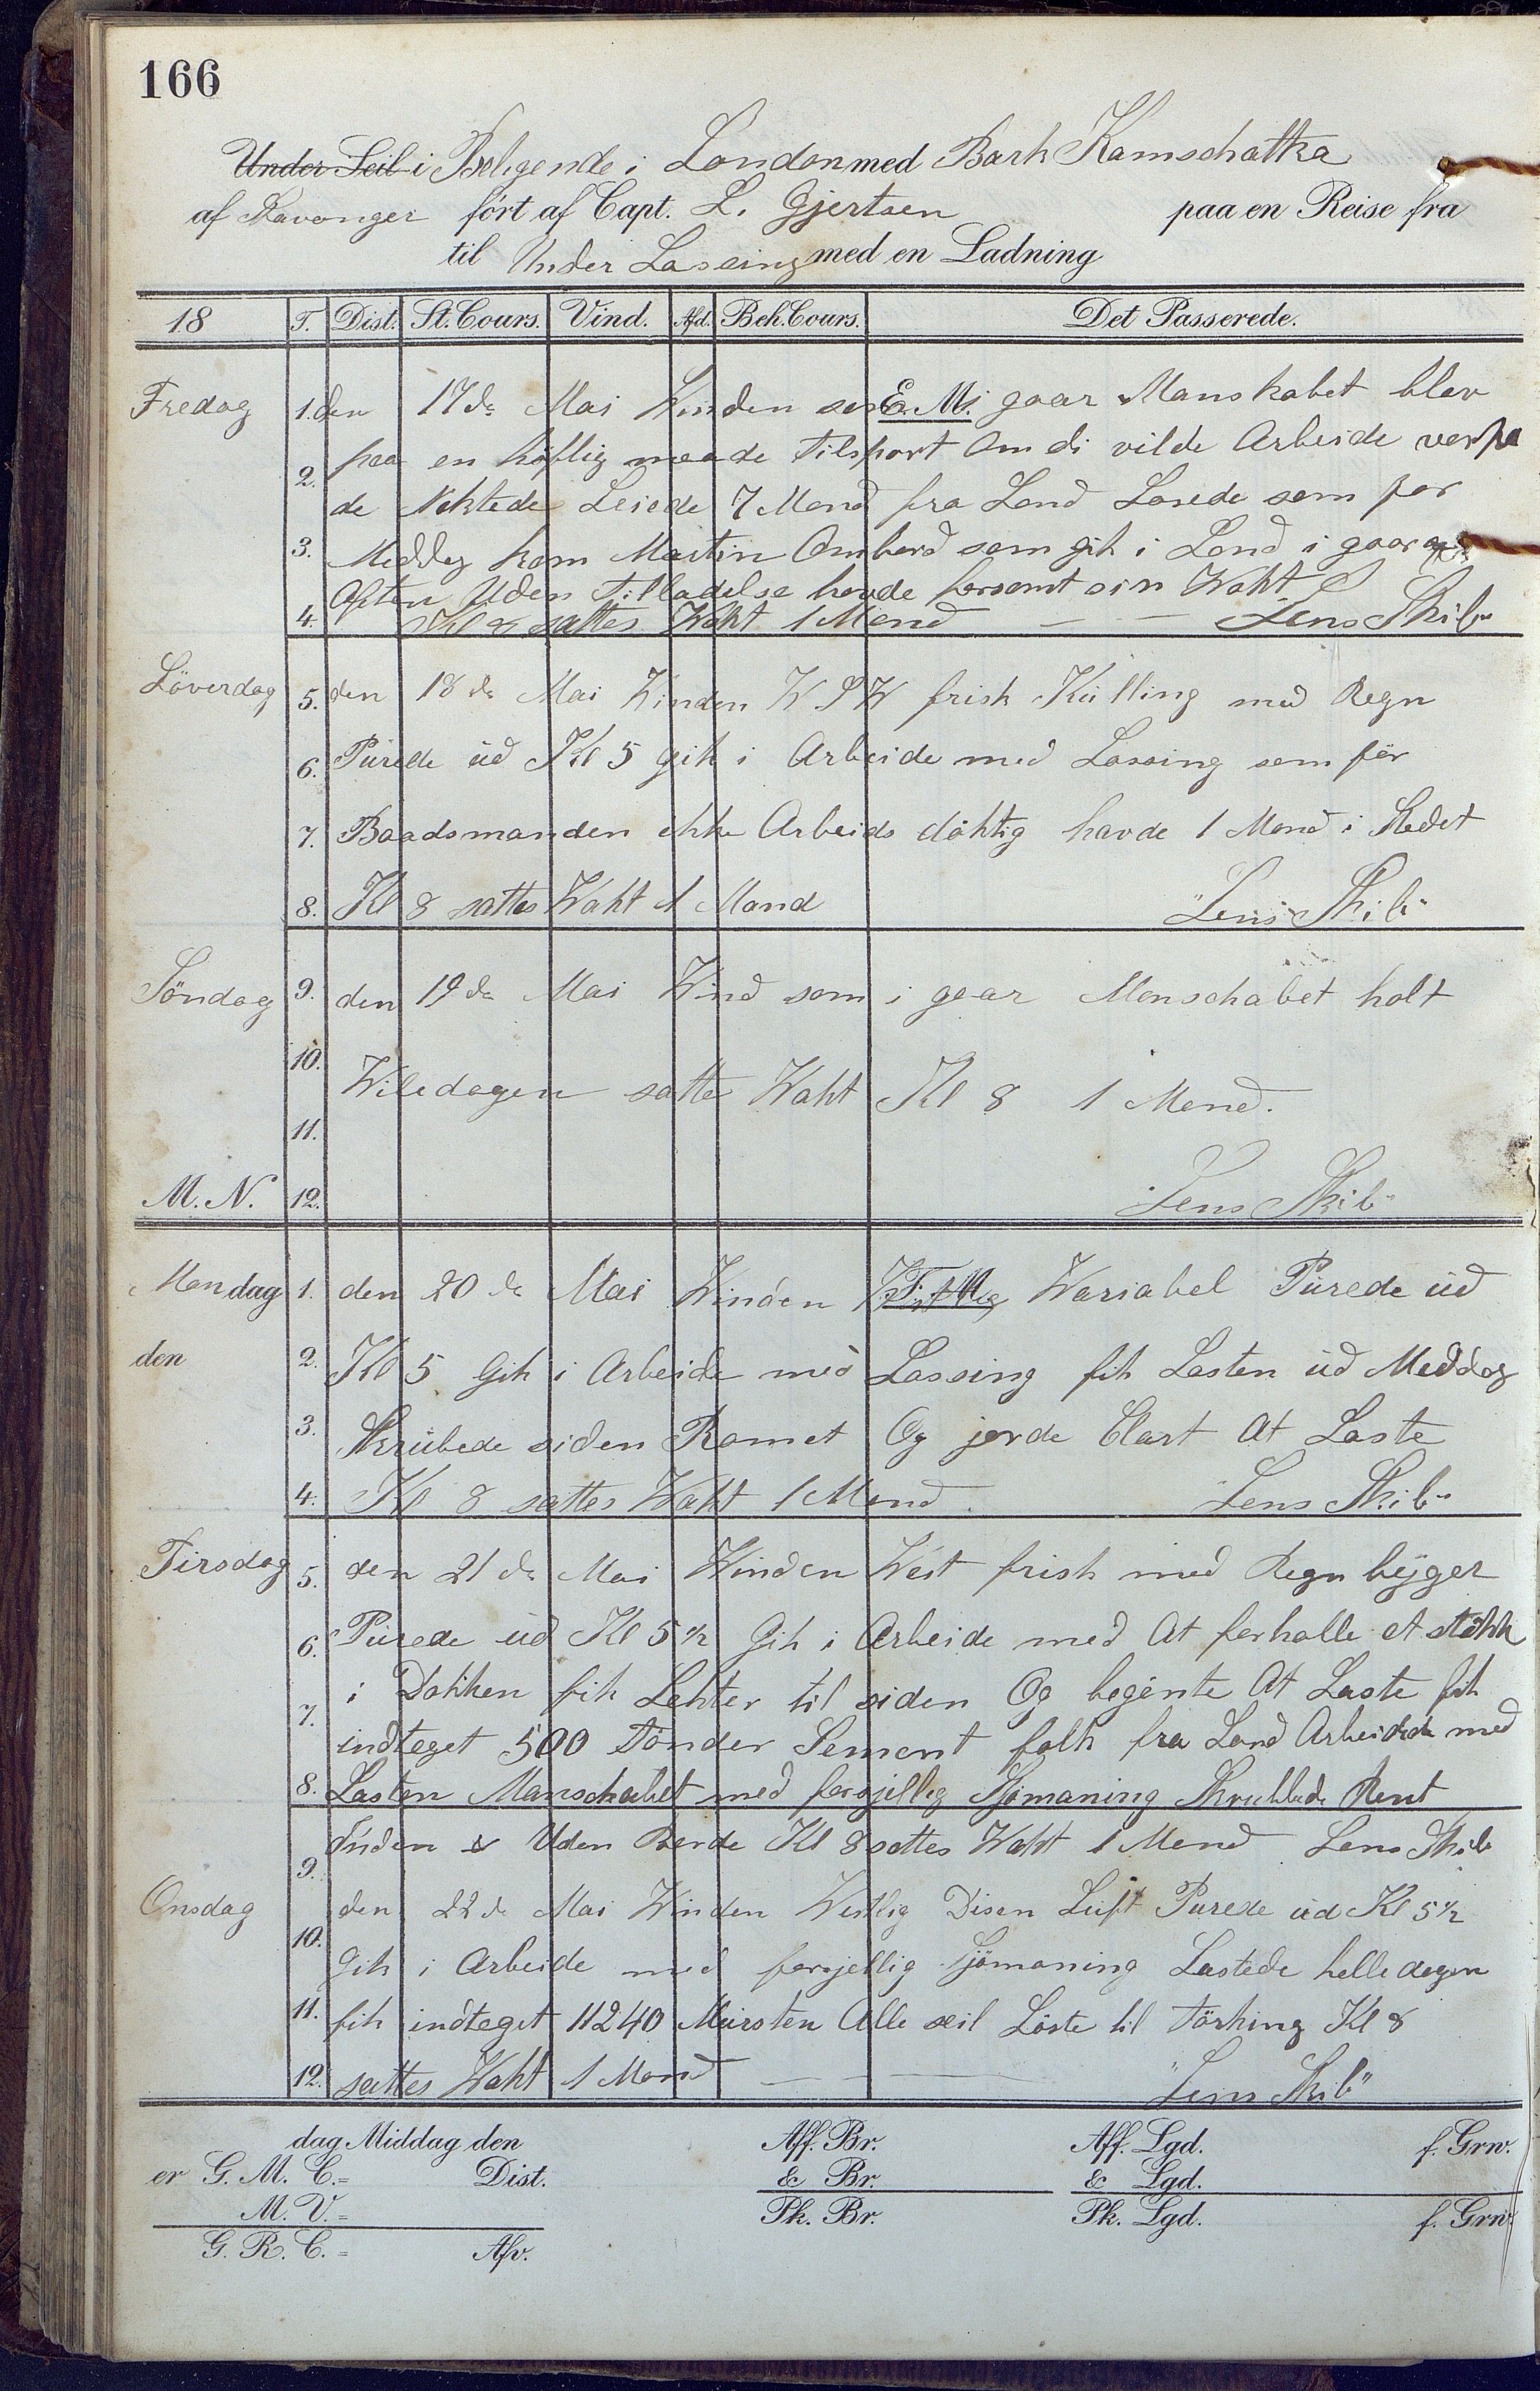 166
Under Seil i Beligende i London med Bark Kamschatka
af Stavanger fört af Capt. L. Gjertsen paa en Reise fra
til Under Lossing med en Ladning
18 T. Dist. St. Cours. Vind. Afd. Beh. Cours. Det Passerede.
Fredag 1. den 17de Mai Winden som E. M. i gaar Manskabet blev
2. paa en höflig maade tilsport Om di vilde Arbeide verpa
de Nektede Leiede 7 Mand fra Land Losede som för
3. Meddag kom Martin Ombord som gik i Land i gaar
Aften Uden Tilladelse havde forsömt sin Wakt
4. Kl 8 sattes Wakt 1 Mand — — Lens Skib"
Löverdag 5. den 18de Mai Winden W S W frisk Kulling med Regn
6. Pürede üd Kl 5 gik i Arbeide med Lossing som för
7. Baadsmanden ikke Arbeids döktig havde 1 Mand i Stedet
8. Kl 8 sattes Wakt 1 Mand "Lens Skib"
Söndag 9. den 19de Mai Wind som i gaar Manschabet holt
10. Wiledagen satte Wakt Kl 8 1 Mand.
11.
M. N. 12. "Lens Skib"
Mandag 1. den 20de Mai Winden F. M. Wariabel Pürede üd
den 2. Kl 5 Gik i Arbeide med Lossing fik Lasten üd Meddag
3. Skrübede siden Romet Og jorde Clart At Laste
4. Kl 8 sattes Wakt 1 Mand. Lens Skib"
Tirsdag 5. den 21de Mai Winden West frisk med Regn byger
6. Pürede üd Kl 5 1/2 Gik i Arbeide med At forhalle et stökk
i Dokken fik Lekter til siden Og begönte At Laste fik
7. indtaget 500 Tönder Sement folk fra Land Arbeidede med
8. Lasten Manschabet med forsjellig Sjömaning Skrubbede Rent
Inden & Uden Borde Kl 8 sattes Wakt 1 Mand Lens Skib
9.
Onsdag den 22de Mai Winden Westlig Disen Luft Pürede üd Kl 5 1/2
10. Gik i Arbeide med forsjellig Sjömaning Lastede helle dagen
11. fik indtaget 11240 Mürsten Alle seil Löste til törking Kl 8
12. sattes Wakt 1 Mand — — — "Lens Skib"
dag Middag den Aff. Br. Aff. Lgd. f. Grw.
er G. M. C.= Dist. & Br. & Lgd.
M. V.= Pk. Br. Pk. Lgd. f. Grw.
G. R. C.= Afv.